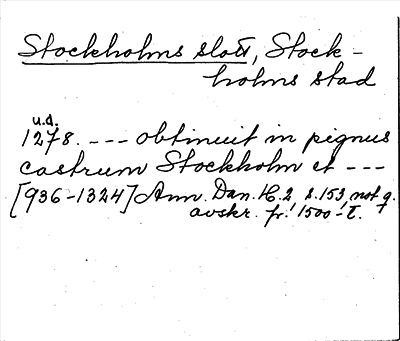 Stockholms slott, Stock-
holms stad
u.d.
1278. --- obtinuit in pignus
castrum Stockholm et ---
[936-1324] Ann. Dan. H. 2, s. 153, not q.
avskr. fr. 1500-t.